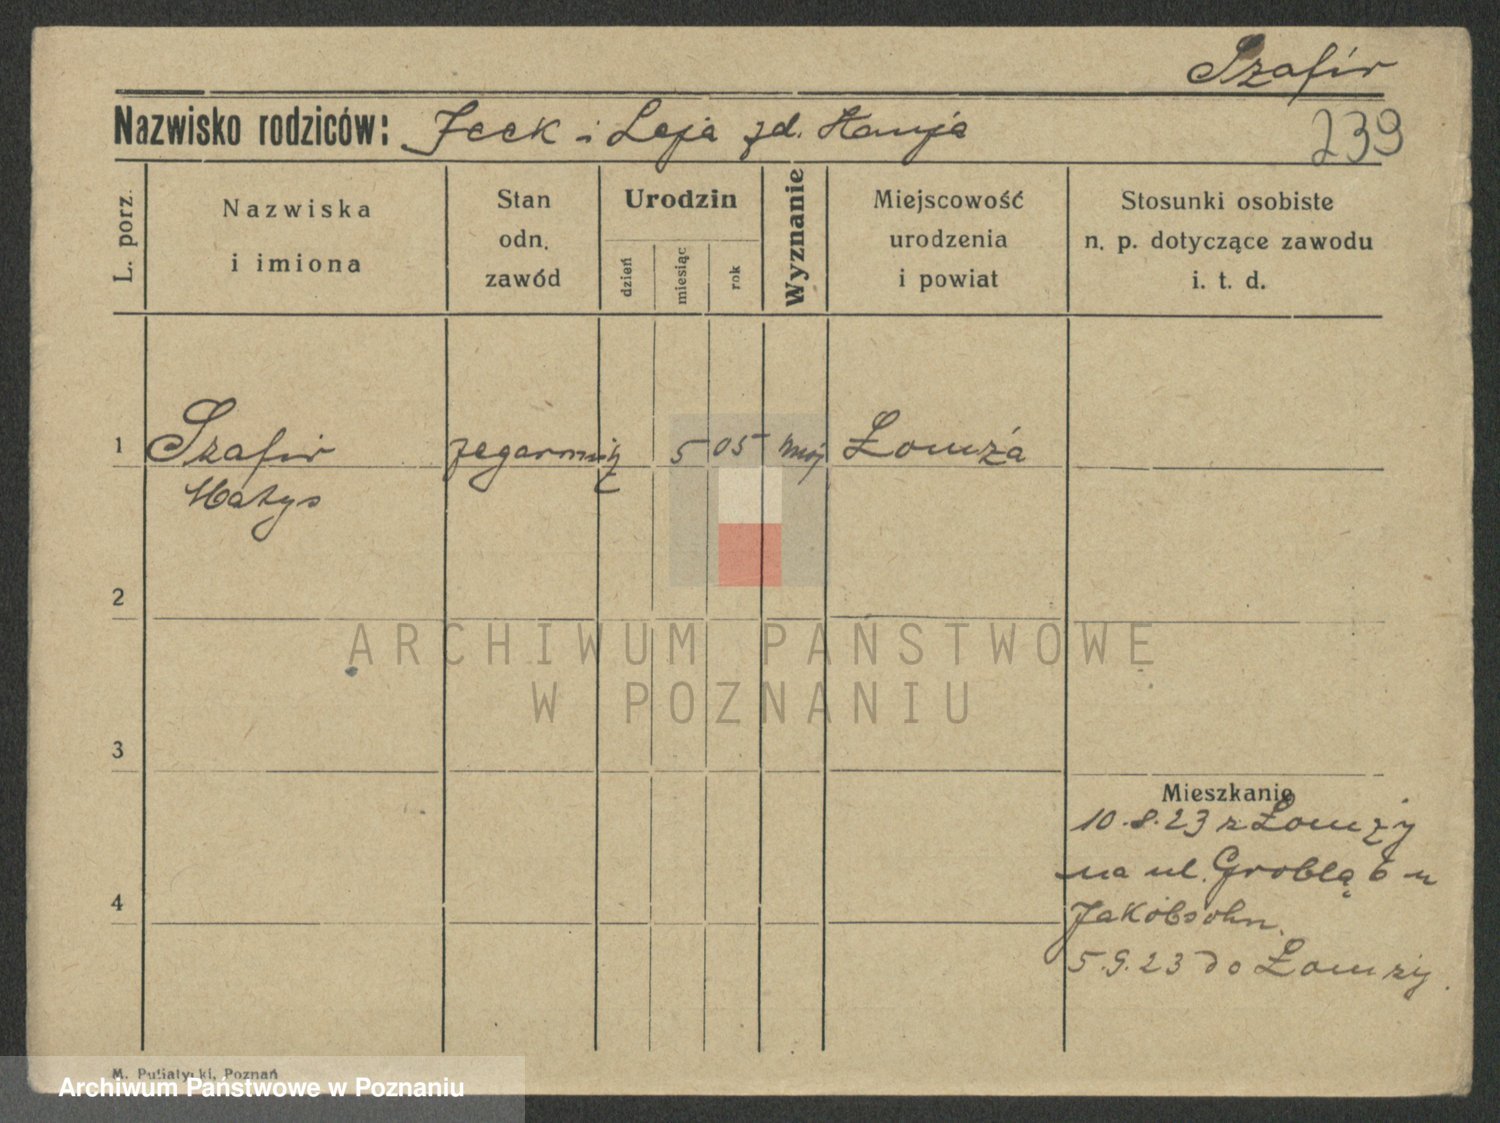 Szafir
Nazwisko rodziców: Icek i Leja zd. Hanja
239
L. porz.
Nazwiska
i imiona
Stan
odn.
zawód
Urodzin
dzień
miesiąc
rok
Wyznanie
Miejscowość
urodzenia
i powiat
Stosunki osobiste
n. p. dotyczące zawodu
i. t. d.
1 Szafir zegarmi 5 05 moj Łomża
Matys
2
ARCHIWUM PAŃSTWOWE
W POZNANIU
3
Mieszkanie
10.8.23 z Łomży
na ul. Groblą 6 u
4
Jakobsohn.
5.9.23 do Łomży.
M. Putiatycki, Poznań
Archiwum Państwowe w Poznaniu